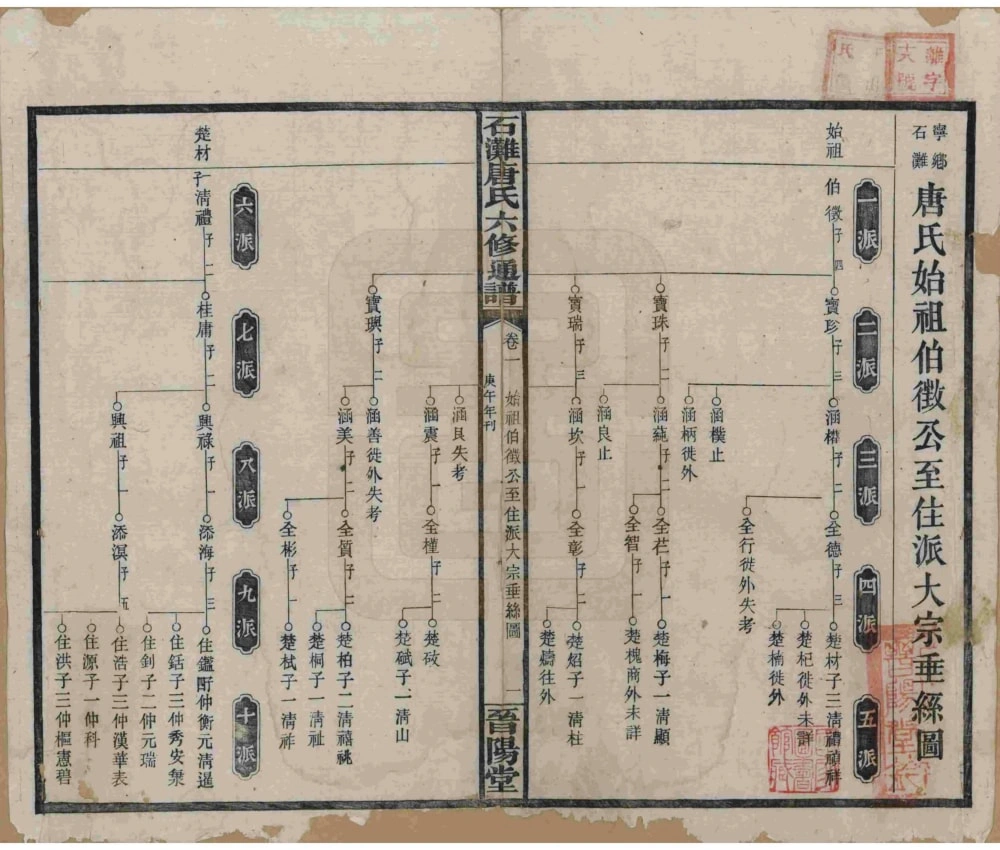 寧鄉
石灘
唐氏始祖伯徵公至住派大宗垂絲圖
一派
二派
三派
四派
五派
始祖
伯徵子四
寶珍子三
涵櫸子二
全德子三
楚材子三清禮禎祥
楚杞徙外未詳
楚楠徙外
全行徙外失考
涵樸止
涵柄徙外
寶珠子二
涵蒓子二
全芒子一
楚梅子一清顯
全智子一
楚槐商外未詳
涵良止
寶瑞子三
涵坎子一
全彰子二
楚炤子一清柱
楚燽往外
石灘唐氏六修通譜
卷一
始祖伯徵公至住派大宗垂絲圖
一
庚午年刊
晉陽堂
涵艮失考
涵震子一
全槿子二
楚砐
楚碔子一清山
寶璵子二
涵善徙外失考
涵美子二
全質子二
楚柏子二清禧祧
楚桐子一清祉
全彬子一
楚栻子一清祚
六派
七派
八派
九派
十派
楚材
子清禮子二
桂庸子二
興祿子一
添海子三
住鑑
子三仲衡元清暹
住銛子三仲秀安椉
住釗子二仲元瑞
興祖子一
添溟子五
住浩子三仲漢華表
住源子一仲科
住洪子三仲樞憲碧